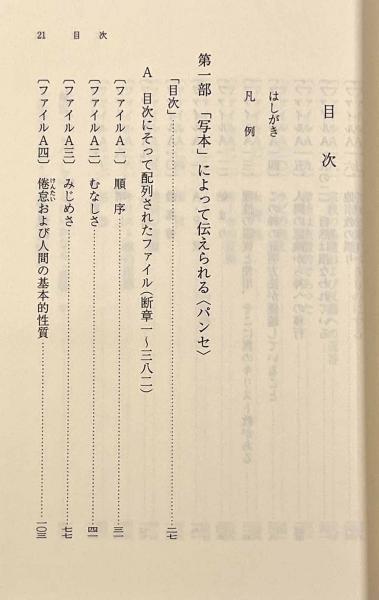 21　目　次
目　次
はしがき
凡　例
第一部　「写本」によって伝えられる〈パンセ〉
A　目次にそって配列されたファイル(断章一〜三八二)
「目次」……………二七
〔ファイルA一〕　順　序……………三一
〔ファイルA二〕　むなしさ……………四一
〔ファイルA三〕　みじめさ……………七七
〔ファイルA四〕　倦怠(けんたい)および人間の基本的性質……………一〇三